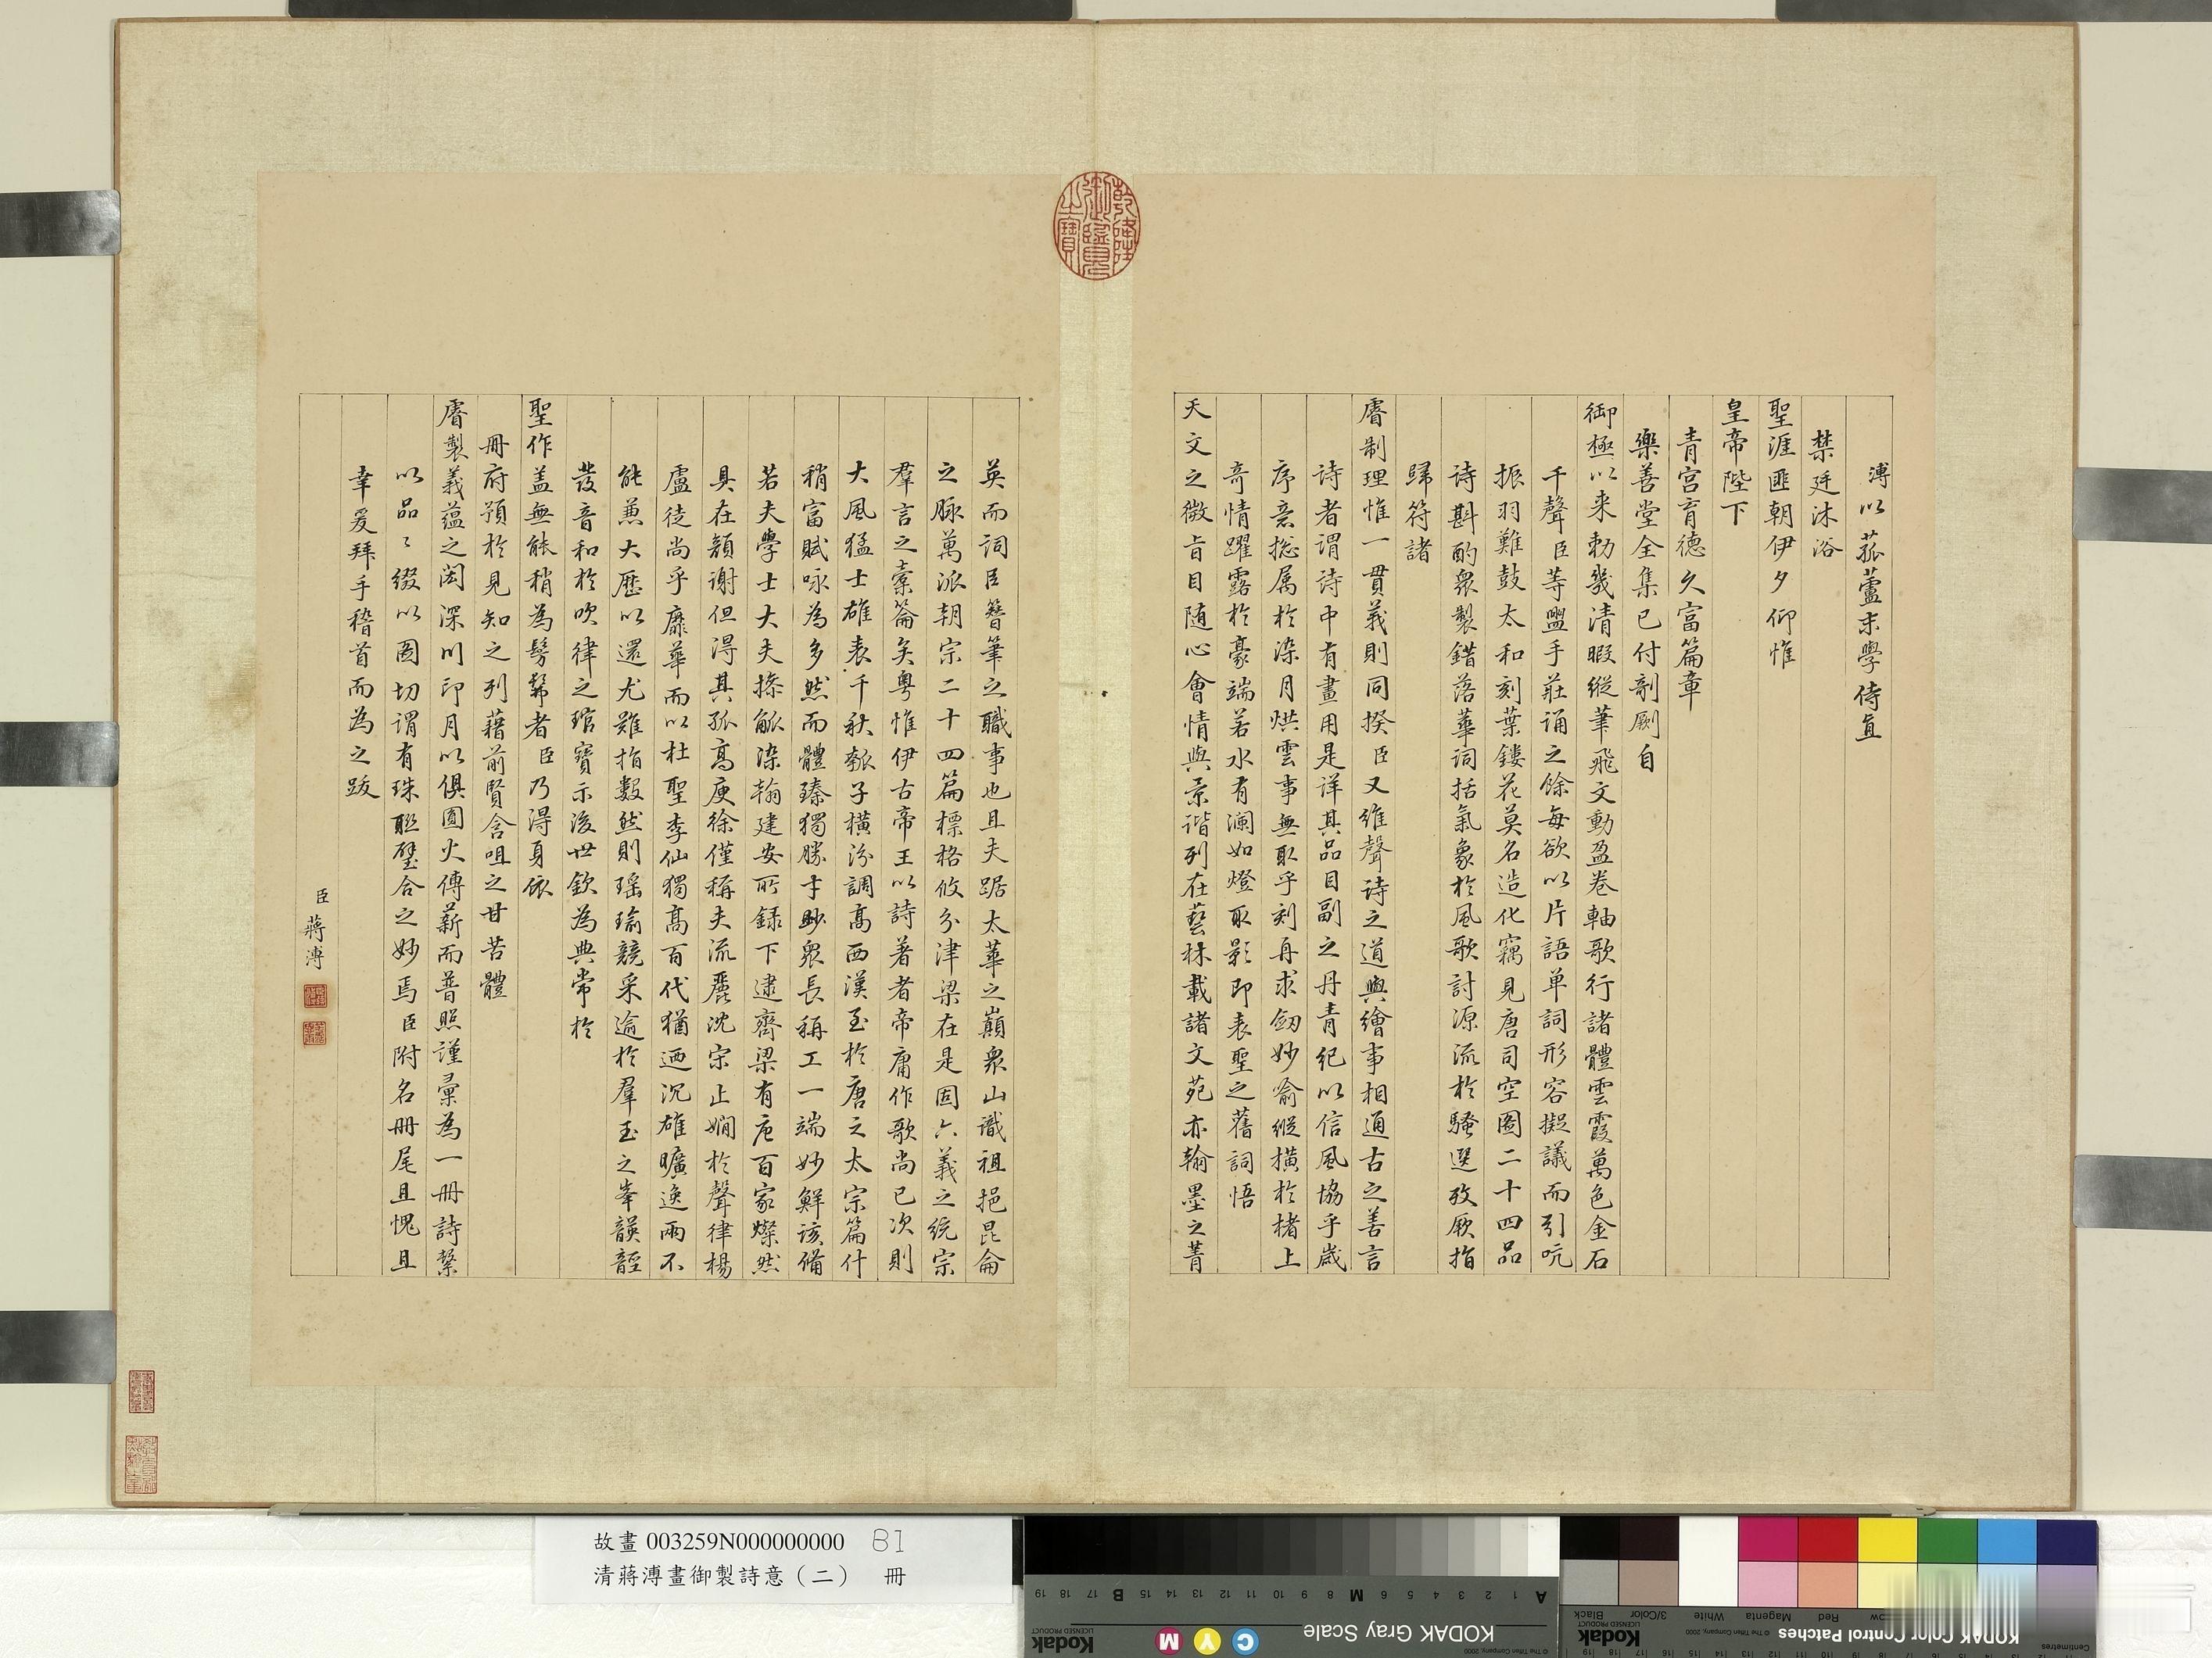 溥以菰蘆末學侍直
禁廷沐浴
聖涯匪朝伊夕仰惟
皇帝陛下
青宮育德久富篇章
樂善堂全集已付剞劂自
御極以来勅幾清暇縱筆飛文動盈卷軸歌行諸體雲霞萬色金石
千聲臣等盥手莊誦之餘每欲以片語单詞形容擬議而引吭
振羽難鼓太和刻葉鏤花莫名造化竊見唐司空圖二十四品
诗斟酌衆製錯落華詞括氣象於風歌討源流於騷選攷厥指
歸符諸
睿制理惟一貫義則同揆臣又維聲诗之道與繪事相通古之善言
诗者谓诗中有畫用是详其品目副之丹青紀以信風協乎歲
序意揔属於染月烘雲事無取乎刻舟求劒妙喻縱横於楮上
奇情躍露於豪端若水有澜如燈取影即表聖之舊詞悟
天文之微旨目随心會情與景谐列在藝林載諸文苑亦翰墨之菁
英而词臣簪筆之職事也且夫踞太華之巔衆山識祖挹昆侖
之脈萬派朝宗二十四篇標格攸分津梁在是固六義之统宗
羣言之橐籥矣粤惟伊古帝王以詩著者帝庸作歌尚已次則
大風猛士雄表千秋瓠子横汾調高西漢至於唐之太宗篇什
稍富賦咏為多然而體臻獨勝才眇衆長稱工一端妙鮮该備
若夫學士大夫操觚染翰建安所録下逮齊梁有唐百家燦然
具在顏谢但得其孤高庾徐僅稱夫流麗沈宋止嫺於聲律楊
盧徒尚乎靡華而以杜聖李仙獨高百代猶迺沉雄曠逸兩不
能兼大歷以還尤難指數然則瑶瑜競采逾於羣玉之峯韺䪫
發音和於吹律之琯寶示後世欽為典常於
聖作盖無能稍為髣髴者臣乃得身依
册府預於見知之列藉前賢含咀之甘苦體
睿製義蘊之閎深川印月以俱圓火傳薪而普照謹彙為一册詩繫
以品〻缀以圖切谓有珠聯璧合之妙焉臣附名册尾且愧且
幸爰拜手稽首而為之跋
臣蔣溥
乾隆御覽之寶
故畫003259N000000000 B1
清蔣溥畫御製詩意（二） 冊
KODAK Gray Scale
Kodak
LICENSED PRODUCT
C Y M
© The Tiffen Company, 2000
A 1 2 3 4 5 6 M 8 9 10 11 12 13 14 15 B 17 18 19
KODAK Color Control Patches
Kodak
LICENSED PRODUCT
© The Tiffen Company, 2000
Red Magenta White 3/Color Black
Centimetres